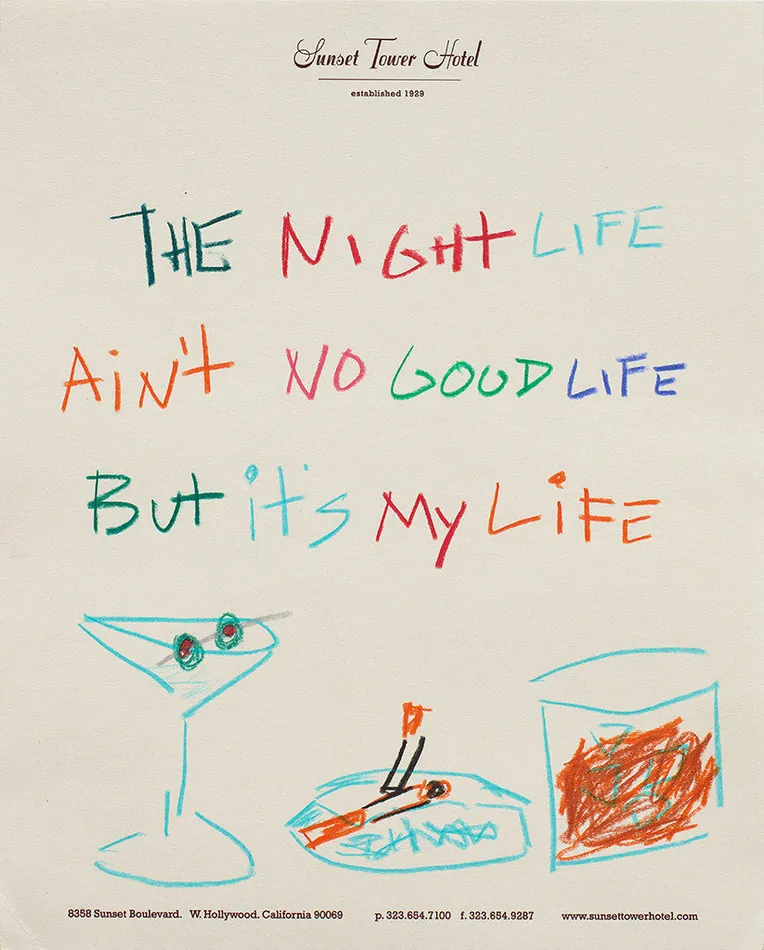 Sunset Tower Hotel
established 1929
THE NIGHT LIFE
AiN't NO GOOD LIFE
But it's My LiFE
8358 Sunset Boulevard. W. Hollywood. California 90069 p. 323.654.7100 f. 323.654.9287 www.sunsettowerhotel.com